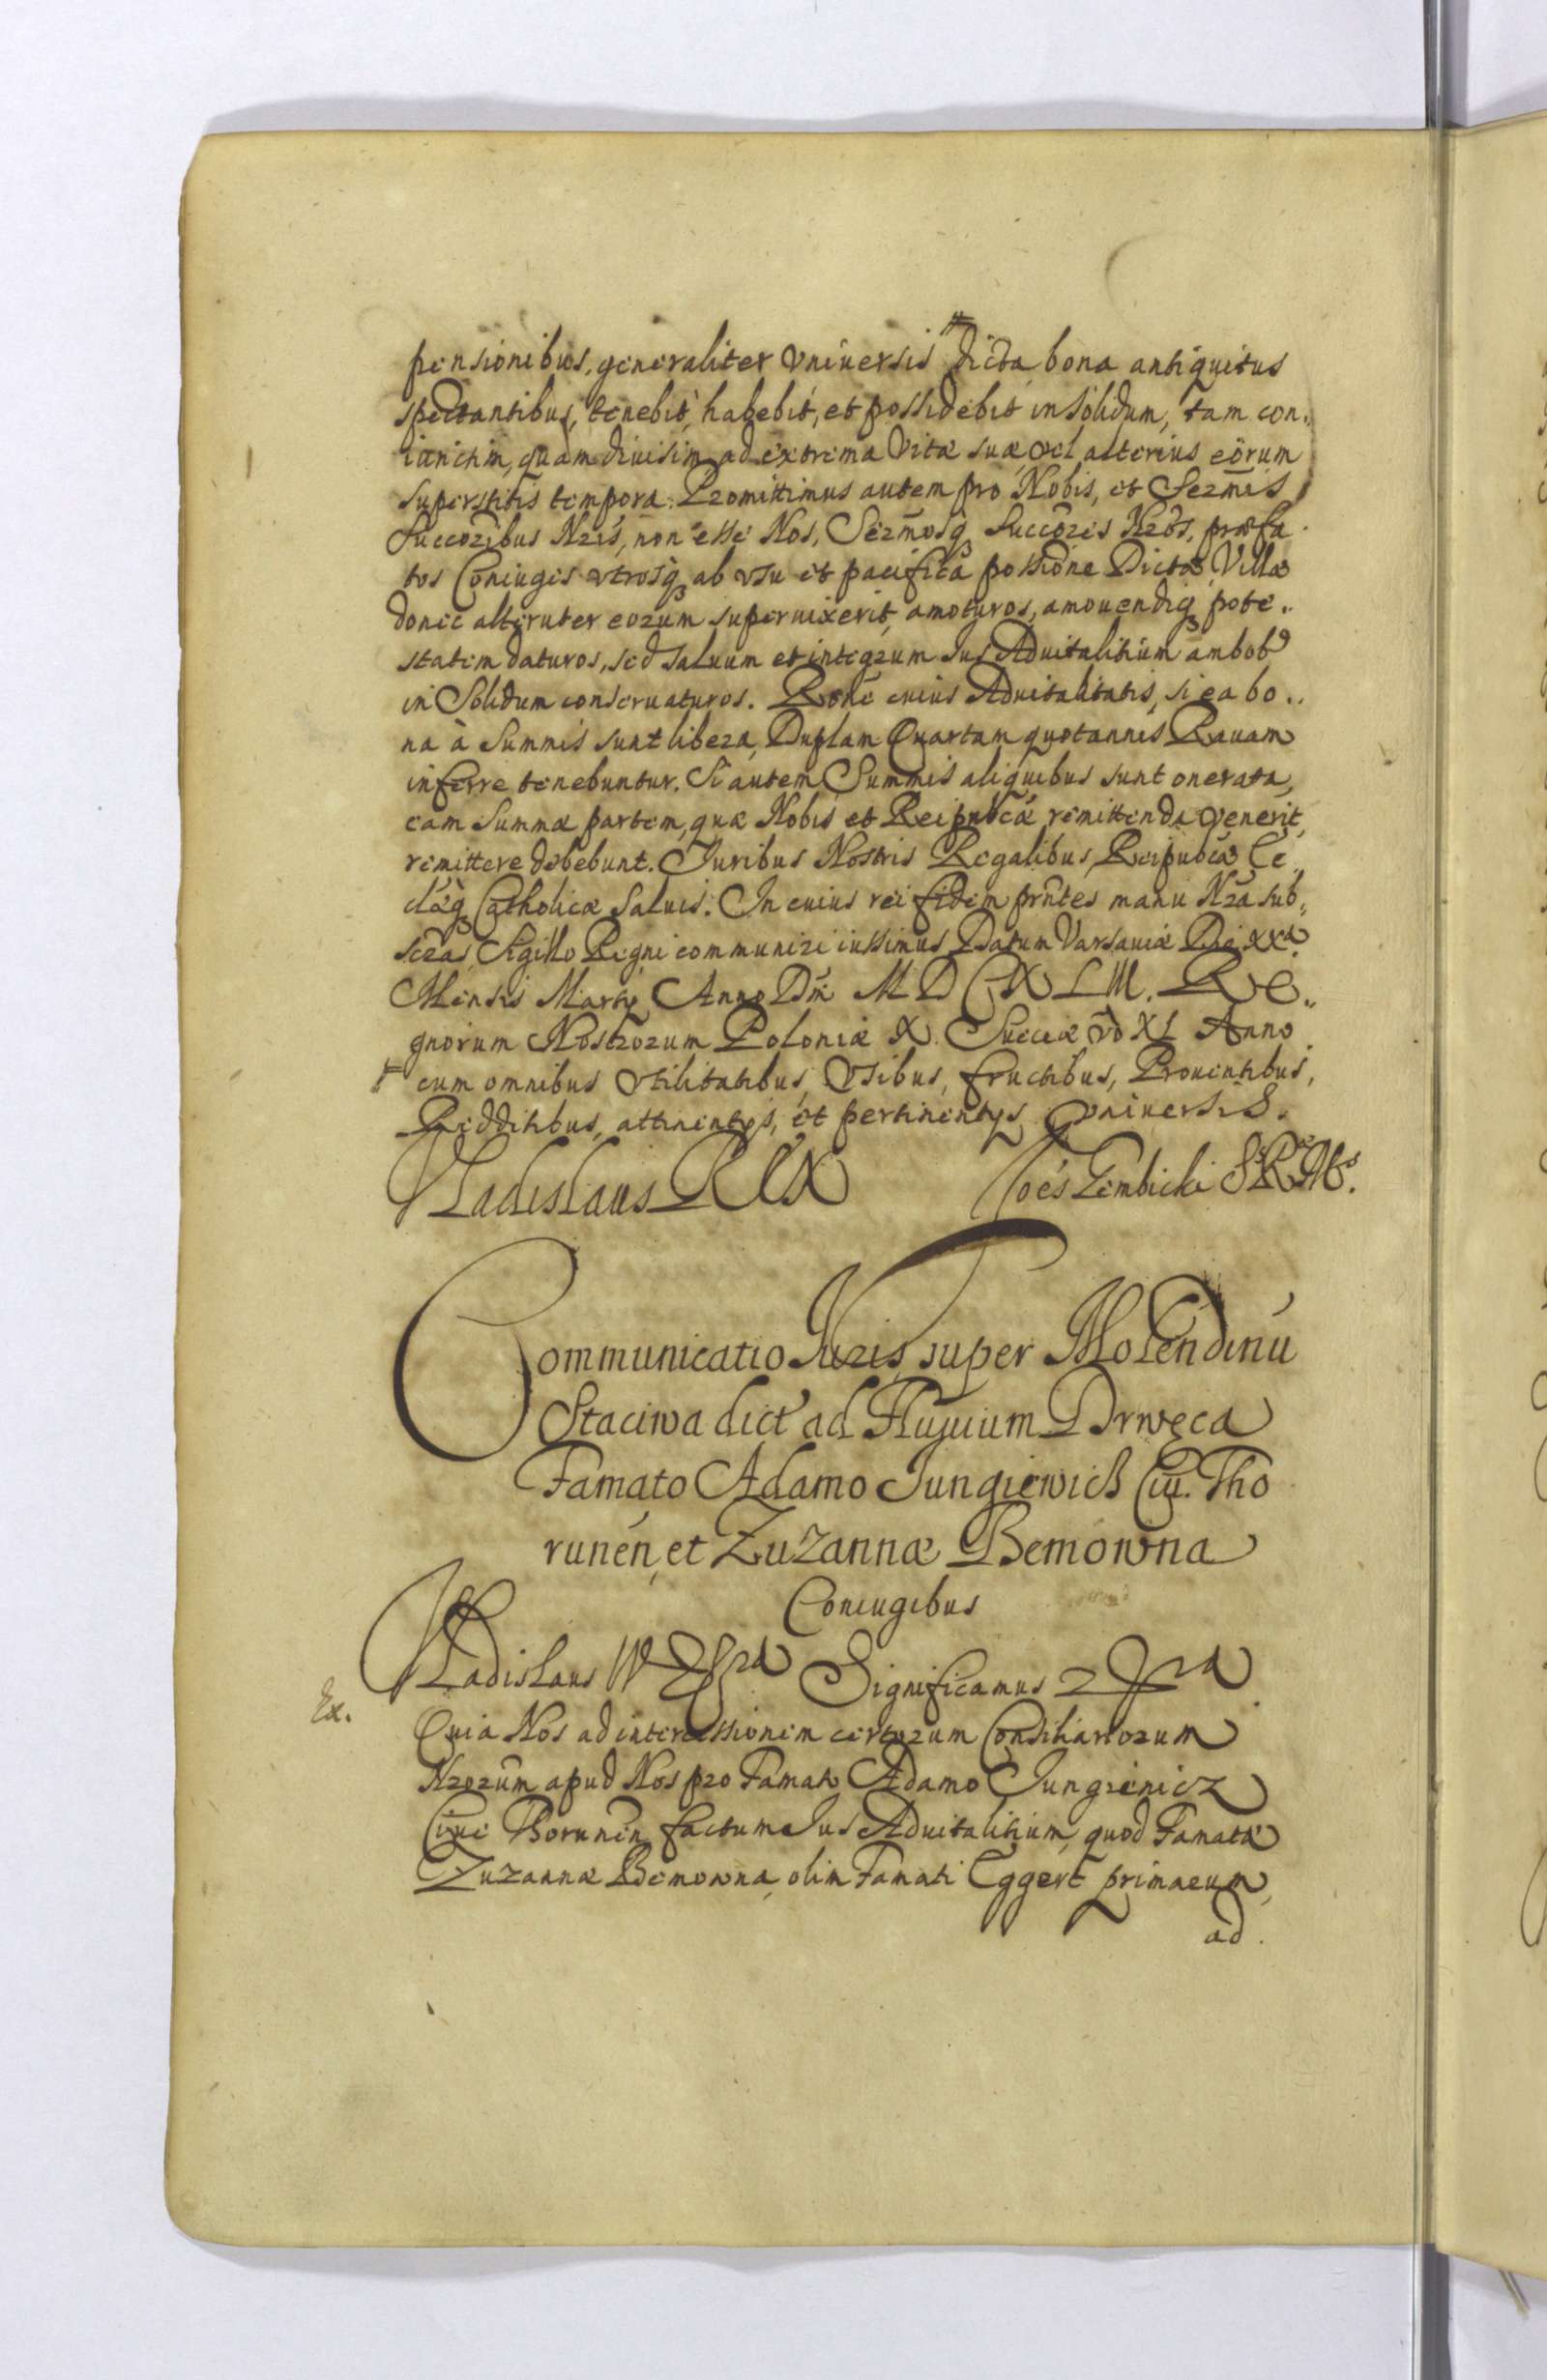 pensionibus, generaliter vniuersis # dicta bona antiquitus
spectantibus, tenebit, habebit, et possidebit in solidum, tam con„
iunctim, quam diuisim ad extrema Vitæ suæ vel alterius eorum
superstitis tempora. Promittimus autem pro Nobis, et Sermis
Succoribus Nris, non esse Nos, Sermosq; Succores Nros, præfa
tos Coniuges vtrosq; ab vsu et pacifica possione Dictæ Villæ
donec alteruter eorum superuixerit, amoturos, amouendiq; pote„
statem daturos, sed saluum et integrum Ius Aduitalitium ambobus
in Solidum conseruaturos. Rone cuius Aduitalitatis, si ea bo„
na à Summis sunt libera, Duplam Quartam quotannis Rauam
inferre tenebuntur. Si autem Summis aliquibus sunt onerata,
eam Summæ partem, quæ Nobis et Reipubcæ remittenda venerit,
remittere debebunt. Iuribus Nostris Regalibus, Reipubcæ Ec
clæq; Catholicæ Saluis. In cuius rei fidem prntes manu Nra sub„
scras, Sigillo Regni communiri iussimus Datum Varsauiæ Die XXa.
Mensis Martij Anno Dni M D C X L II. Re„
gnorum Nostrorum Poloniæ X. Sueciæ vo XI Anno.
# cum omnibus vtilitatibus, Vsibus, fructibus, Prouentibus,
Redditibus, attinentijs, et pertinentijs vniuersis.
Vladislaus REX Joes Zembicki SRMS.
Communicatio Iuris super Molendinu
Staciwa dict ad Fluuium Drwęca
Famato Adamo Jungiewich Ciu. Tho
runen, et Zuzannæ Bemowna
Coniugibus
Ex.
Vladislaus IV Significamus
Quia Nos ad intercessionem certorum Consiliariorum
Nrorum apud Nos pro Famato Adamo Jungiewicz
Ciue Thorunen factum Ius Aduitalitium, quod Famatæ
Zuzannæ Bemowna, olim Famati Eggert primaeum,
ad.